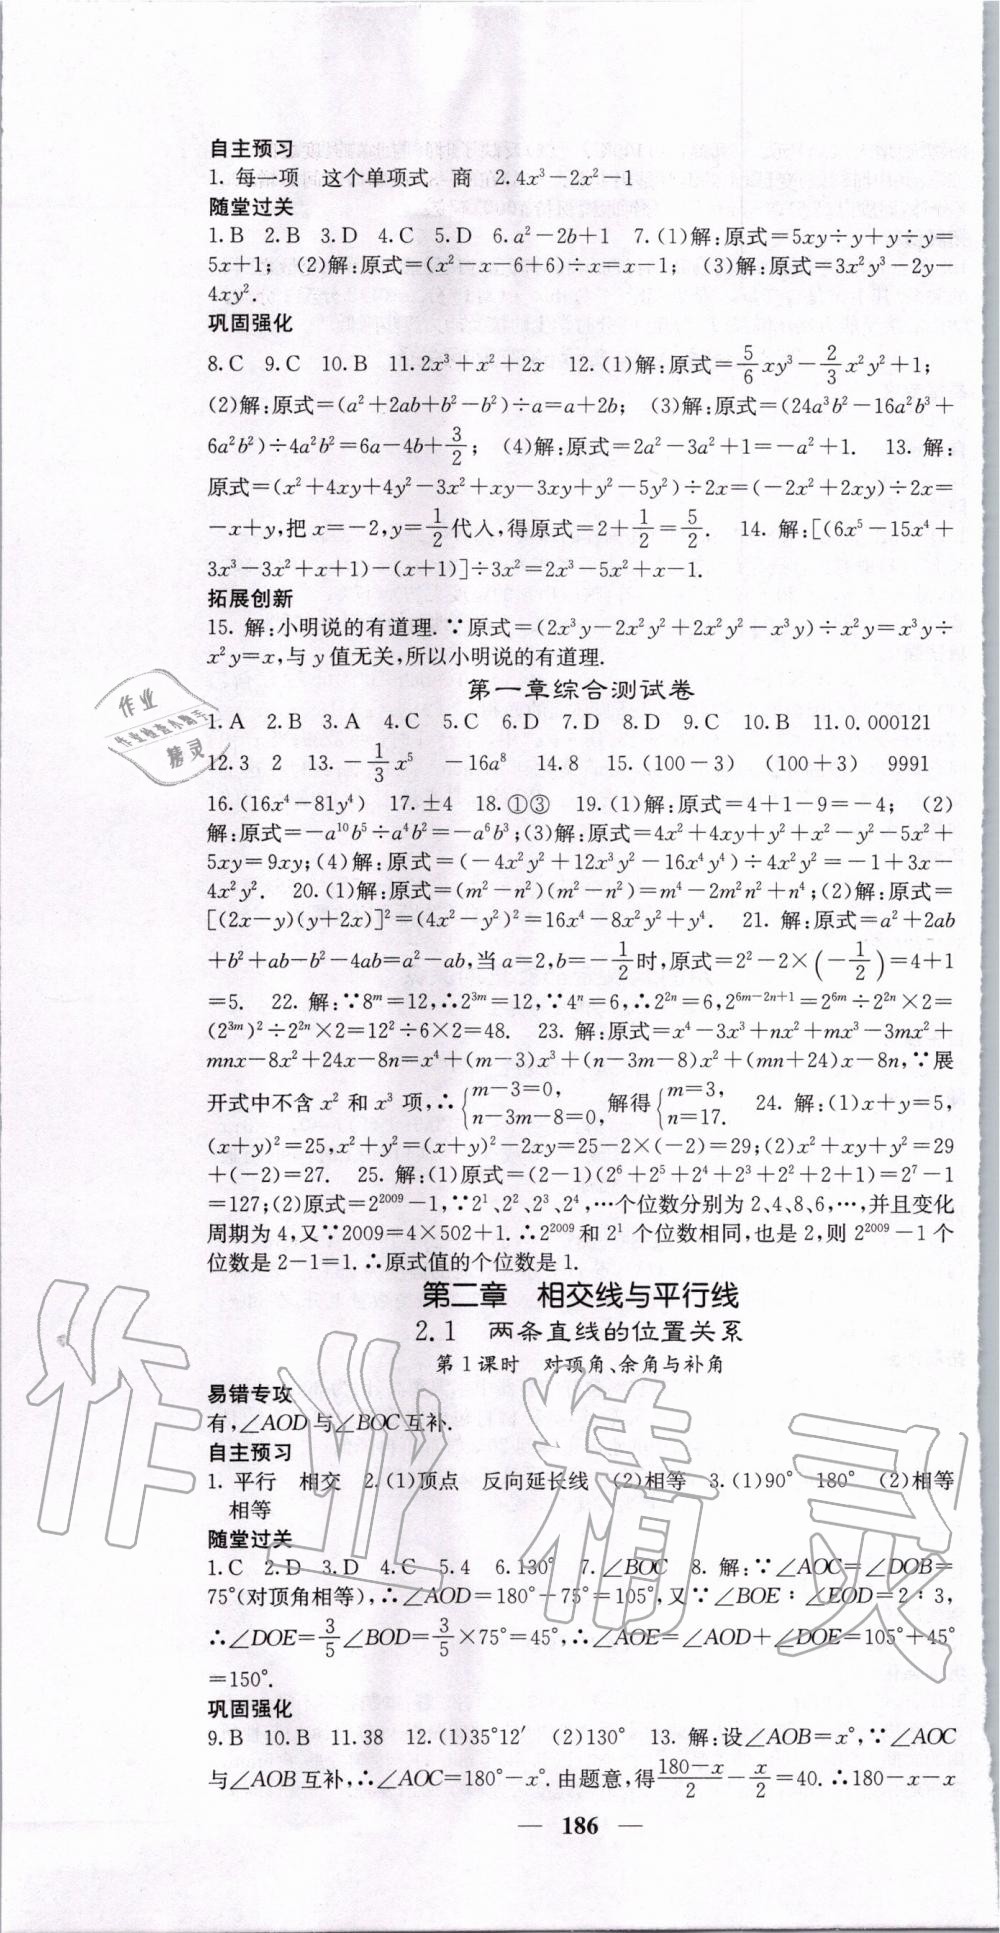 自主预习
1. 每一项　这个单项式　商　2. 4x³－2x²＋1
随堂过关
1. B　2. B　3. D　4. C　5. D　6. a²－2b＋1　7. (1)解:原式＝5xy÷y＋y÷y＝
5x＋1;　(2)解:原式＝(x²＋x－6＋6)÷x＝x－1;　(3)解:原式＝3x²y³－2y－
4xy².
巩固强化
8. C　9. C　10. B　11. 2x³＋x²＋2x　12. (1)解:原式＝5/6 xy³－2/3 x²y²＋1;
(2)解:原式＝(a²＋2ab＋b²－b²)÷a＝a＋2b;　(3)解:原式＝(24a³b²－16a²b³＋
6a²b²)÷4a²b²＝6a－4b＋3/2;　(4)解:原式＝2a²－3a²＋1＝－a²＋1.　13. 解:
原式＝(x²＋4xy＋4y²－3x²＋xy－3xy＋y²－5y²)÷2x＝(－2x²＋2xy)÷2x＝
－x＋y,把 x＝－2,y＝1/2代入,得原式＝2＋1/2＝5/2.　14. 解:[(6x⁵－15x⁴＋
3x³－3x²＋x＋1)－(x＋1)]÷3x²＝2x³－5x²＋x－1.
拓展创新
15. 解:小明说的有道理.∵原式＝(2x³y－2x²y²＋2x²y²－x³y)÷x²y＝x³y÷
x²y＝x,与 y 值无关,所以小明说的有道理.
第一章综合测试卷
1. A　2. B　3. A　4. C　5. C　6. D　7. D　8. D　9. C　10. B　11. 0.000121
12. 3　2　13. －1/3 x⁵　－16a⁸　14. 8　15. (100－3)　(100＋3)　9991
16. (16x⁴－81y⁴)　17. ±4　18. ①③　19. (1)解:原式＝4＋1－9＝－4;　(2)
解:原式＝－a¹⁰b⁵÷a⁴b²＝－a⁶b³;(3)解:原式＝4x²＋4xy＋y²＋x²－y²－5x²＋
5xy＝9xy;(4)解:原式＝(－4x²y²＋12x³y²－16x⁴y⁴)÷4x²y²＝－1＋3x－
4x²y².　20. (1)解:原式＝(m²－n²)(m²－n²)＝m⁴－2m²n²＋n⁴;(2)解:原式＝
[(2x－y)(y＋2x)]²＝(4x²－y²)²＝16x⁴－8x²y²＋y⁴.　21. 解:原式＝a²＋2ab
＋b²＋ab－b²－4ab＝a²－ab,当 a＝2,b＝－1/2时,原式＝2²－2×(－1/2)＝4＋1
＝5.　22. 解:∵8ᵐ＝12,∴2³ᵐ＝12,∵4ⁿ＝6,∴2²ⁿ＝6,2⁶ᵐ⁻²ⁿ⁺¹＝2⁶ᵐ÷2²ⁿ×2＝
(2³ᵐ)²÷2²ⁿ×2＝12²÷6×2＝48.　23. 解:原式＝x⁴－3x³＋nx²＋mx³－3mx²＋
mnx－8x²＋24x－8n＝x⁴＋(m－3)x³＋(n－3m－8)x²＋(mn＋24)x－8n,∵展
开式中不含 x² 和 x³ 项,∴{m－3＝0, n－3m－8＝0, 解得{m＝3, n＝17.　24. 解:(1)x＋y＝5,
(x＋y)²＝25,x²＋y²＝(x＋y)²－2xy＝25－2×(－2)＝29;(2)x²＋xy＋y²＝29
＋(－2)＝27.　25. 解:(1)原式＝(2－1)(2⁶＋2⁵＋2⁴＋2³＋2²＋2＋1)＝2⁷－1
＝127;(2)原式＝2²⁰⁰⁹－1,∵2¹、2²、2³、2⁴,…个位数分别为 2、4、8、6,…,并且变化
周期为 4,又∵2009＝4×502＋1.∴2²⁰⁰⁹和 2¹ 个位数相同,也是 2,则 2²⁰⁰⁹－1 个
位数是 2－1＝1.∴原式值的个位数是 1.
第二章　相交线与平行线
2.1　两条直线的位置关系
第 1 课时　对顶角、余角与补角
易错专攻
有,∠AOD与∠BOC互补.
自主预习
1. 平行　相交　2. (1)顶点　反向延长线　(2)相等　3. (1)90°　180°　(2)相等
相等
随堂过关
1. C　2. D　3. D　4. C　5. 4　6. 130°　7. ∠BOC　8. 解:∵∠AOC＝∠DOB＝
75°(对顶角相等),∴∠AOD＝180°－75°＝105°,又∵∠BOE∶∠EOD＝2∶3,
∴∠DOE＝3/5∠BOD＝3/5×75°＝45°,∴∠AOE＝∠AOD＋∠DOE＝105°＋45°
＝150°.
巩固强化
9. B　10. B　11. 38　12. (1)35°12′　(2)130°　13. 解:设∠AOB＝x°,∵∠AOC
与∠AOB互补,∴∠AOC＝180°－x°.由题意,得(180－x)/2－x/2＝40.∴180－x－x
— 186 —
作业
作业检查小助手
精灵
作业精灵